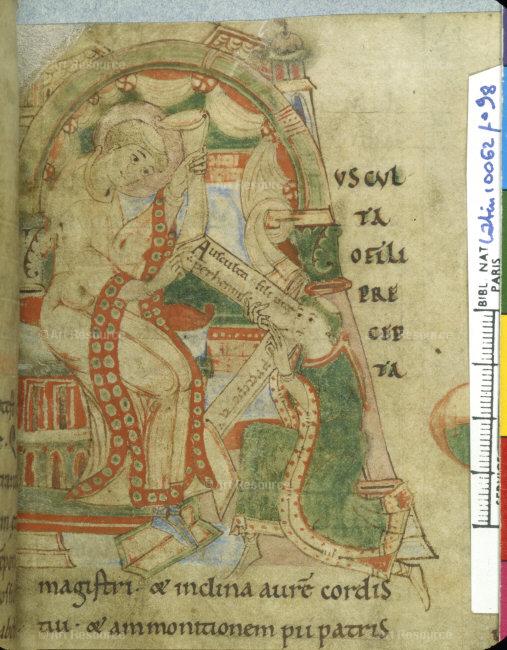 VSCVL
TA
OFILI
PRE
CEP
TA
Ausculta fili
magistri. & inclina aurē cordis
tui. & ammonitionem pii patris
BIBL NAT
PARIS
Latin 10062 fo 98
Art Resource